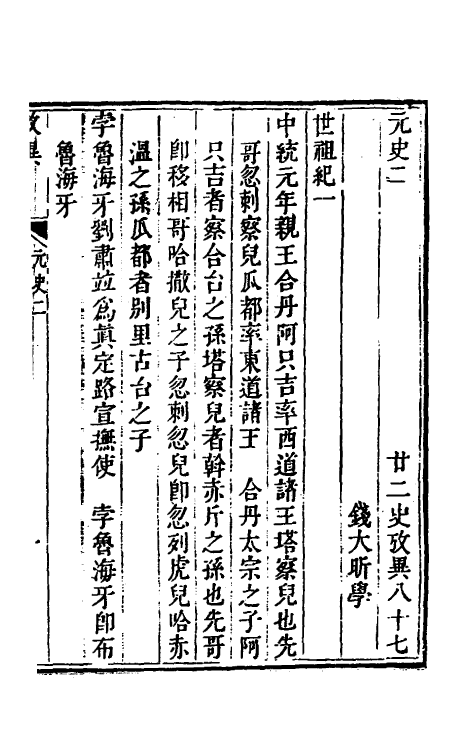 元史二　廿二史攷異八十七
錢大昕學
世祖紀一
中統元年親王合丹阿只吉率西道諸王塔察兒也先
哥忽剌察兒瓜都率東道諸王　合丹太宗之子阿
只吉者察合台之孫塔察兒者斡赤斤之孫也先哥
卽移相哥哈撒兒之子忽剌忽兒卽忽列虎兒哈赤
溫之孫瓜都者别里古台之子
孛魯海牙劉肅竝爲眞定路宣撫使　孛魯海牙卽布
魯海牙
元史二